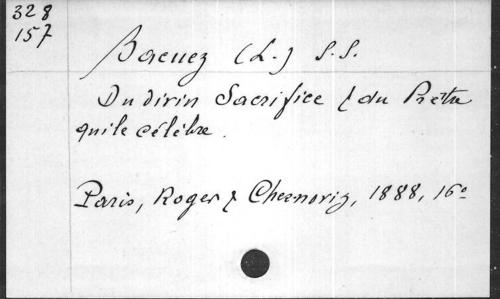 328
157
Bacuez (L.) S.S.
Du divin Sacrifice & du Prêtre
qui le célèbre.
Paris, Roger & Chernoviz, 1888, 16º